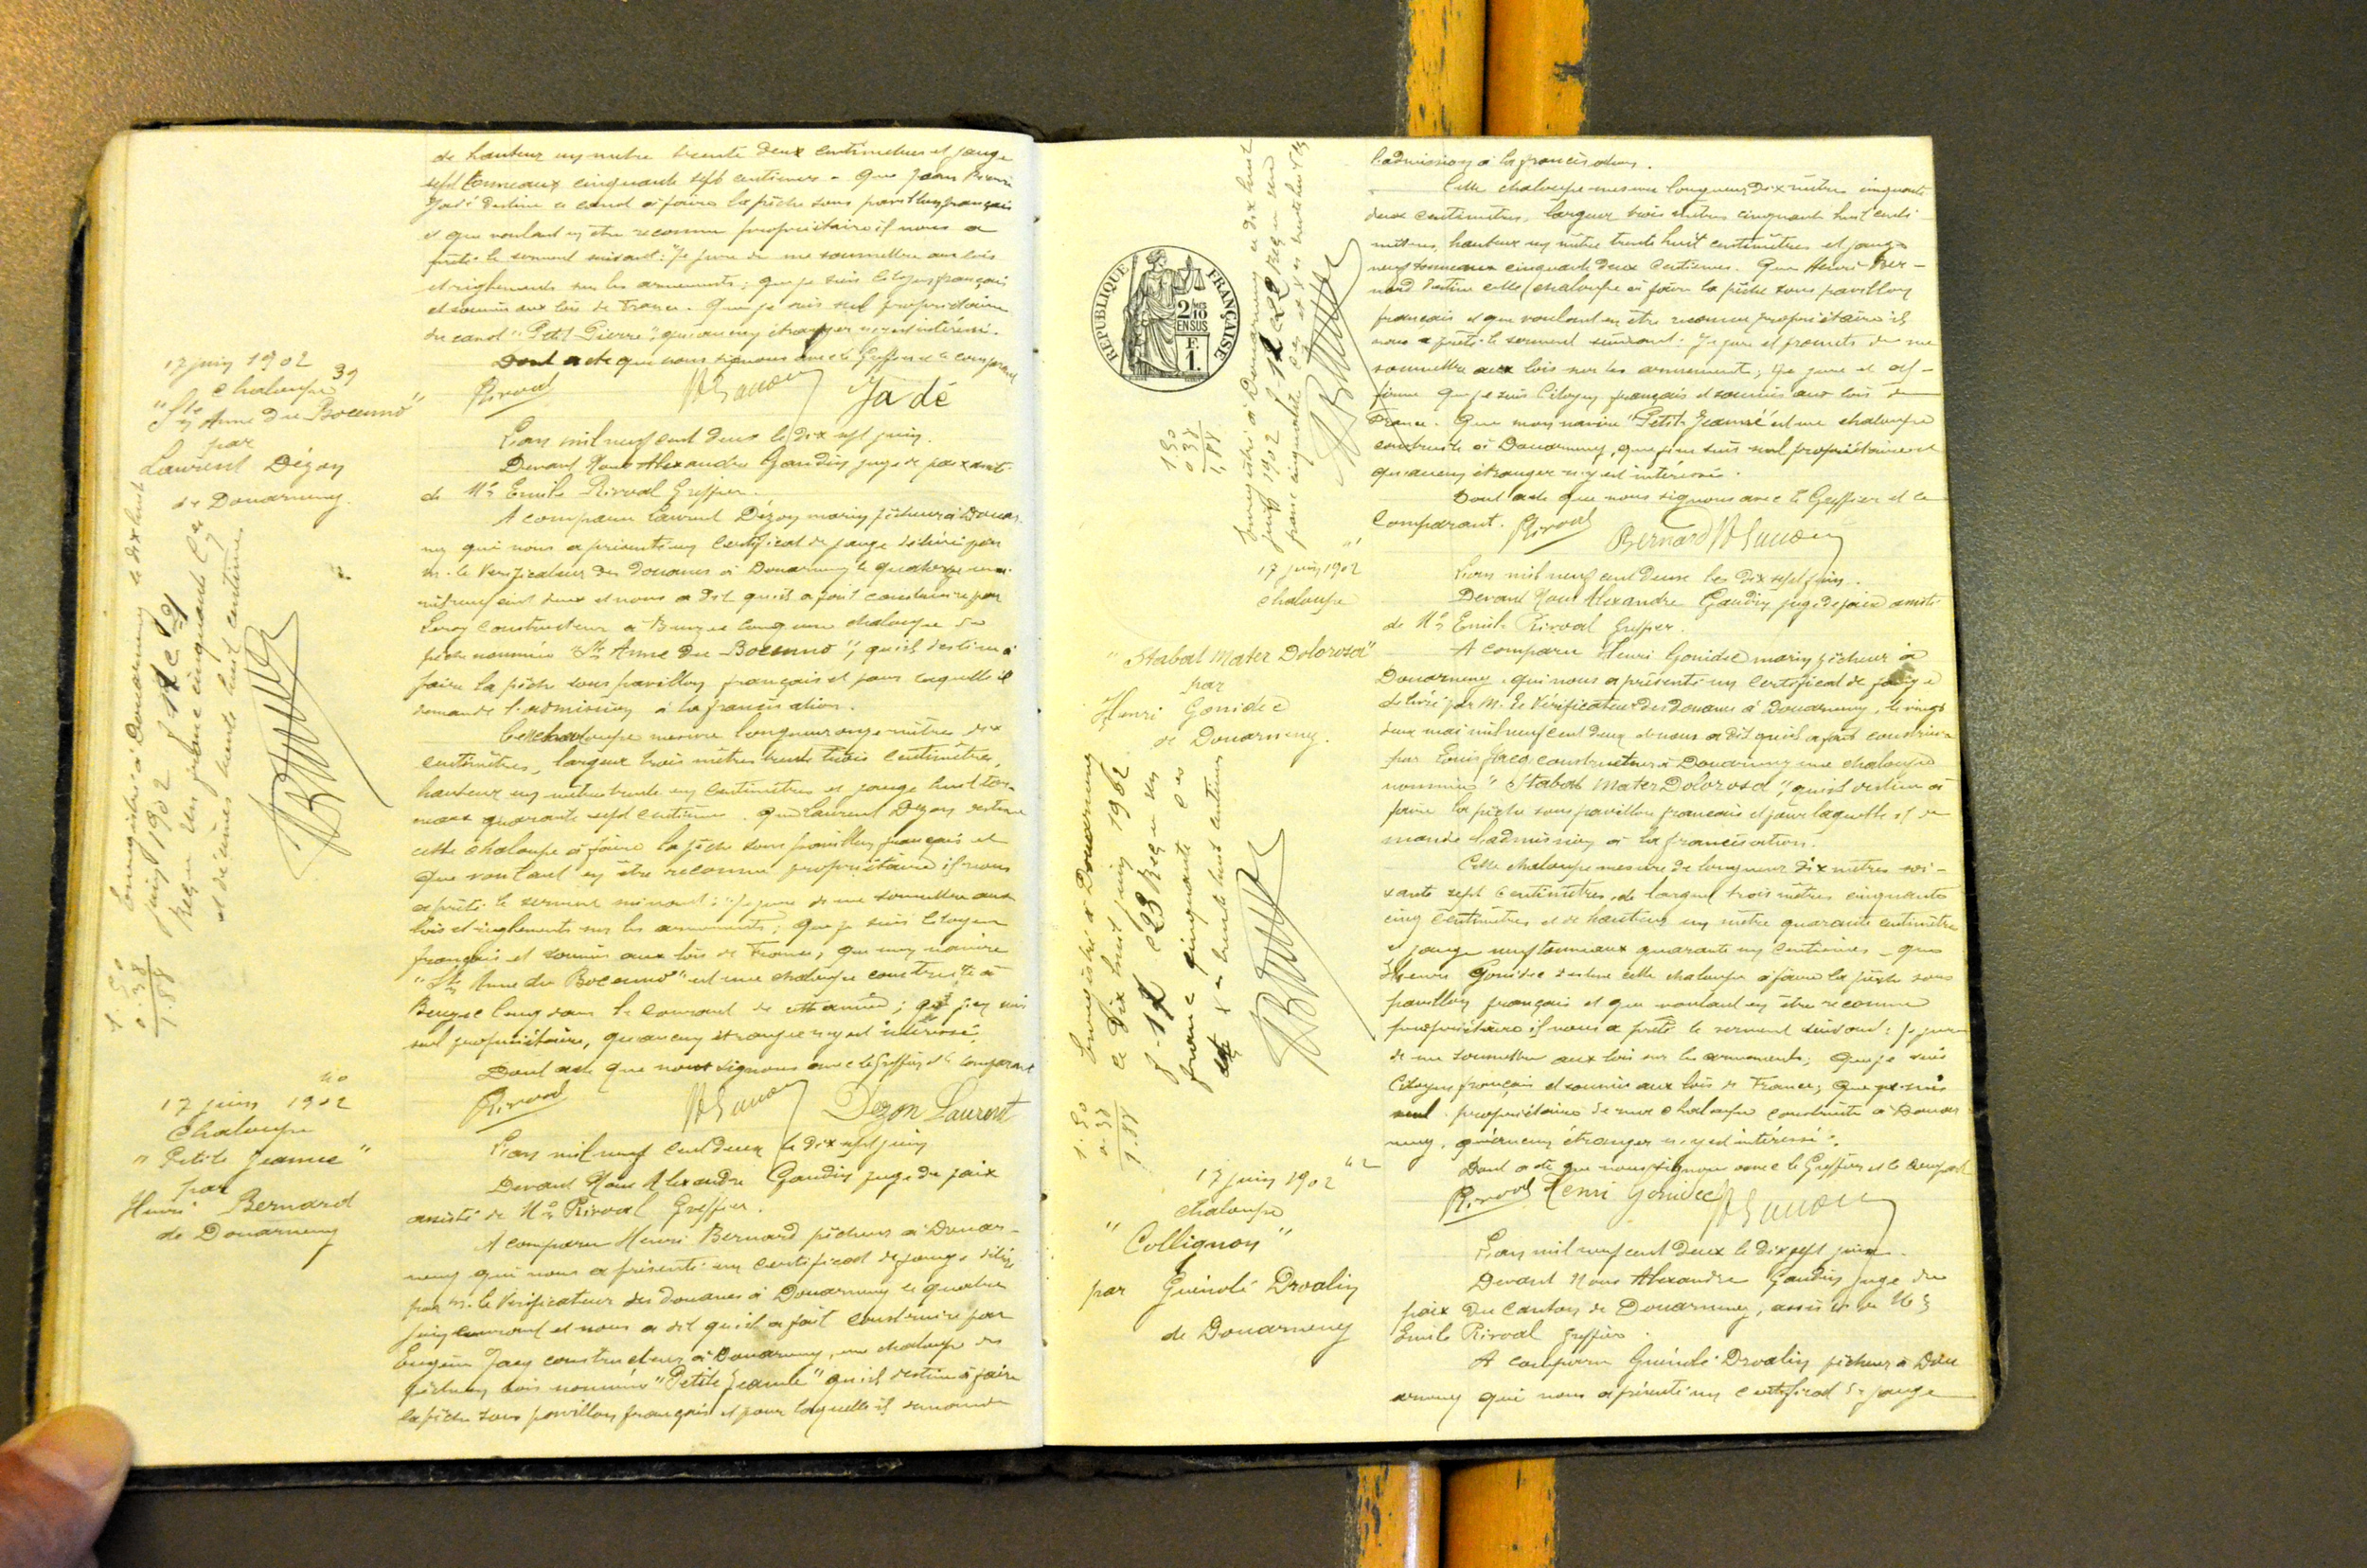 de hauteur un mètre trente deux centimètres et jauge
sept tonneaux cinquante sept centièmes - Que Jean Pierre
Jadé destine ce canot à faire la pêche sous pavillon français
et que voulant en être reconnu propriétaire il nous a
prêté le serment suivant : "Je jure de me soumettre aux lois
et règlements sur les armements ; que je suis citoyen français
et soumis aux lois de France. Que je suis seul propriétaire
du canot "Petit Pierre", qu'aucun étranger n'y est intéressé.
Dont acte que nous signons avec le Greffier et le comparant
Rirval Jadé
39
17 juin 1902
Chaloupe
"Ste Anne du Bocenno"
par
Laurent Dézon
de Douarnenez.
Enregistré à Douarnenez le dix huit
juin 1902 f. 12 c 21
Reçu un franc cinquante Ces
et décimes trente huit centimes
1.50
0.38
1.88
L'an mil neuf cent deux le dix sept juin.
Devant Nous Alexandre Gaudin juge de paix assisté
de Me Emile Rirval Greffier.
A comparu Laurent Dézon marin pêcheur à Douarne-
nez qui nous a présenté un certificat de jauge délivré par
M. le Vérificateur des Douanes à Douarnenez le quatorze
mil neuf cent deux et nous a dit qu'il a fait construire par
Leroy constructeur à Beuzec Conq une chaloupe de
pêche nommée "Ste Anne du Bocenno", qu'il destine à
faire la pêche sous pavillon français et pour laquelle il
demande l'admission à la francisation.
Cette chaloupe mesure longueur onze mètres dix
centimètres, largeur trois mètres trente trois centimètres,
hauteur un mètre trente un centimètres et jauge huit ton-
neaux quarante sept centièmes. Que Laurent Dézon destine
cette chaloupe à faire la pêche sous pavillon français et
que voulant en être reconnu propriétaire il nous
a prêté le serment suivant : "Je jure de me soumettre aux
lois et règlements sur les armements ; que je suis citoyen
français et soumis aux lois de France, que mon navire
"Ste Anne du Bocenno" est une chaloupe construite à
Beuzec Conq dans le courant de cette année ; que j'en suis
seul propriétaire, qu'aucun étranger n'y est intéressé".
Dont acte que nous signons avec le Greffier et le comparant
Rirval Dezon Laurent
40
17 juin 1902
Chaloupe
"Petite Jeanne"
par
Henri Bernard
de Douarnenez
L'an mil neuf cent deux le dix sept juin
Devant Nous Alexandre Gaudin juge de paix
assisté de Me Rirval Greffier.
A comparu Henri Bernard pêcheur à Douar-
nenez qui nous a présenté un certificat de jauge délivré
par M. le Vérificateur des douanes à Douarnenez le quatre
juin courant et nous a dit qu'il a fait construire par
Eugène Jacq constructeur à Douarnenez, une chaloupe de
pêche en bois nommée "Petite Jeanne" qu'il destine à faire
la pêche sous pavillon français et pour laquelle il demande
RÉPUBLIQUE FRANÇAISE
2/10 EN SUS
1 F.
Enregistré à Douarnenez ce dix huit
juin 1902 f. 12 c 22 Reçu un
franc cinquante Ces et Xes trente huit
1.50
0.38
1.88
l'admission à la francisation.
Cette chaloupe mesure longueur dix mètres cinquante
deux centimètres, largeur trois mètres cinquante huit centi-
mètres, hauteur un mètre trente huit centimètres et jauge
neuf tonneaux cinquante deux centièmes. Que Henri Ber-
nard destine cette chaloupe à faire la pêche sous pavillon
français et que voulant en être reconnu propriétaire il
nous a prêté le serment suivant : Je jure et promets de me
soumettre aux lois sur les armements ; je jure et af-
firme que je suis Citoyen français et soumis aux lois de
France. Que mon navire "Petite Jeanne" est une chaloupe
construite à Douarnenez, que j'en suis seul propriétaire et
qu'aucun étranger n'y est intéressé.
Dont acte que nous signons avec le Greffier et le
Comparant. Rirval Bernard
41
17 juin 1902
Chaloupe
"Stabat Mater Dolorosa"
par
Henri Gonidec
de Douarnenez.
Enregistré à Douarnenez
ce dix huit juin 1902
f. 12 c 23 Reçu un
franc cinquante Ces
et Xes trente huit centimes
1.50
0.38
1.88
L'an mil neuf cent deux le dix sept juin.
Devant Nous Alexandre Gaudin juge de paix assisté
de Me Emile Rirval Greffier.
A comparu Henri Gonidec marin pêcheur à
Douarnenez, qui nous a présenté un certificat de jauge
délivré par M. le Vérificateur des Douanes à Douarnenez, le vingt
deux mai mil neuf cent deux et nous a dit qu'il a fait construire
par Louis Jacq constructeur à Douarnenez une chaloupe
nommée "Stabat Mater Dolorosa", qu'il destine à
faire la pêche sous pavillon français et pour laquelle il de
mande l'admission à la francisation.
Cette chaloupe mesure de longueur dix mètres soi-
xante sept centimètres, de largeur trois mètres cinquante
cinq centimètres et de hauteur un mètre quarante centimètres
et jauge neuf tonneaux quarante un centièmes - que
Henri Gonidec destine cette chaloupe à faire la pêche sous
pavillon français et que voulant en être reconnu
propriétaire il nous a prêté le serment suivant : Je jure
de me soumettre aux lois sur les armements ; Que je suis
Citoyen français et soumis aux lois de France ; Que je suis
seul propriétaire de ma chaloupe construite à Douar
nenez, qu'aucun étranger n'y est intéressé".
Dont acte que nous signons avec le Greffier et le comparant
Rirval Henri Gonidec
42
17 juin 1902
Chaloupe
"Collignon"
par Guénolé Drévalin
de Douarnenez
L'an mil neuf cent deux le dix sept juin.
Devant Nous Alexandre Gaudin juge de
paix du Canton de Douarnenez, assisté de Me
Emile Rirval Greffier.
A comparu Guénolé pêcheur à Dou
arnenez qui nous a présenté un certificat de jauge